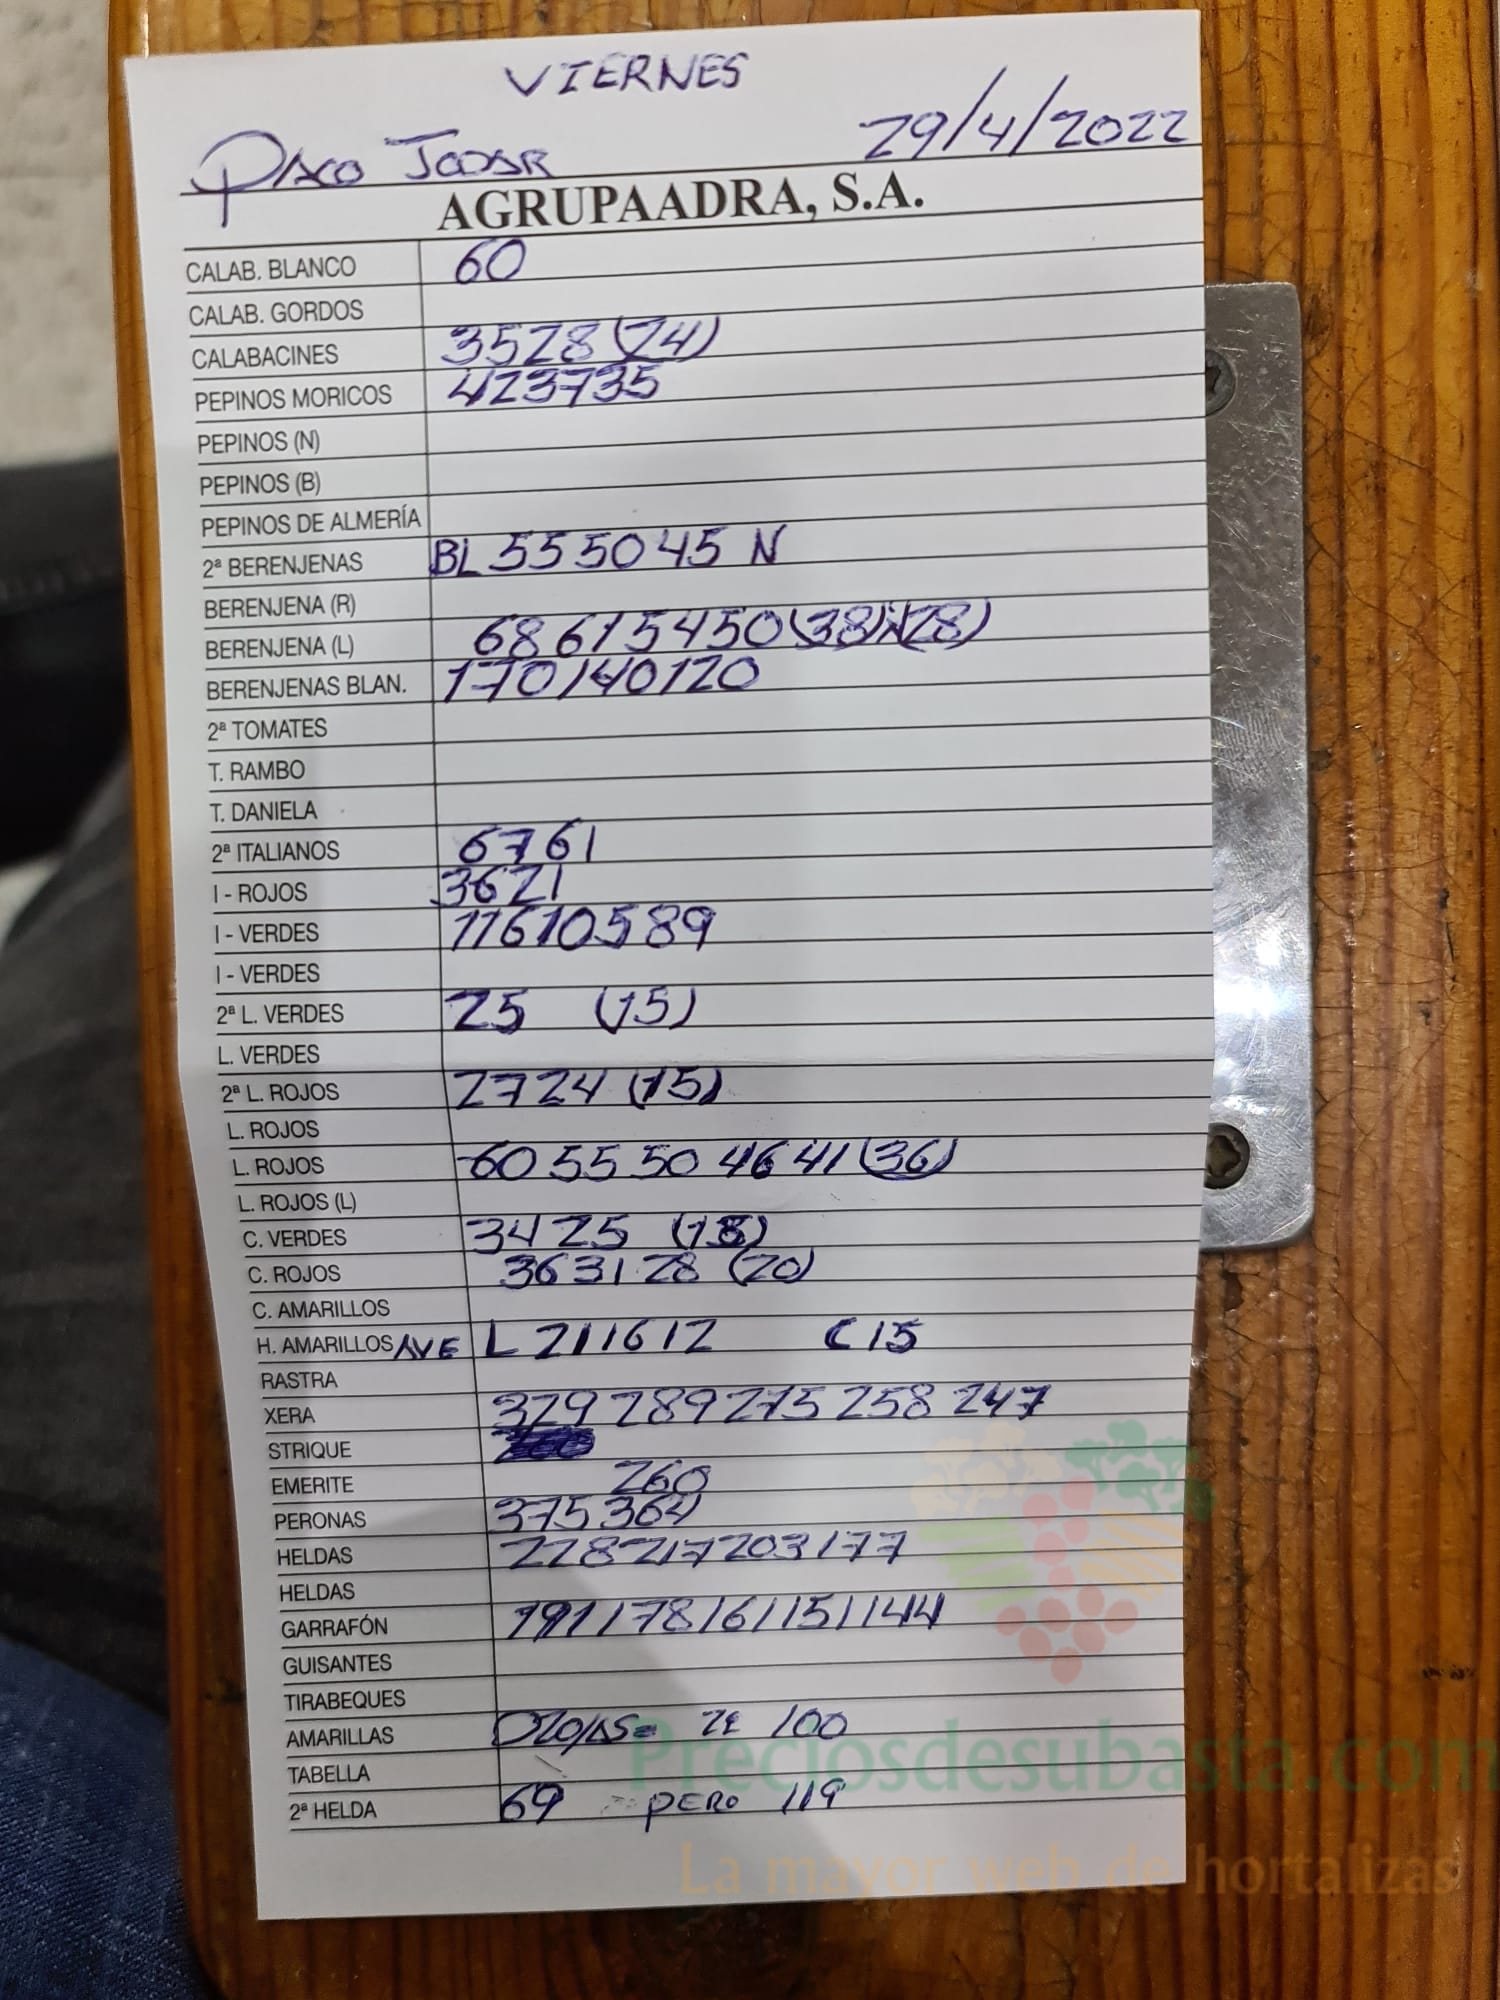 VIERNES
PACO JODAR 29/4/2022
AGRUPAADRA, S.A.
CALAB. BLANCO 60
CALAB. GORDOS
CALABACINES 3528 (24)
PEPINOS MORICOS 423735
PEPINOS (N)
PEPINOS (B)
PEPINOS DE ALMERÍA
2ª BERENJENAS BL 55 50 45 N
BERENJENA (R)
BERENJENA (L) 68 61 54 50 (38) N (28)
BERENJENAS BLAN. 170 140 120
2ª TOMATES
T. RAMBO
T. DANIELA
2ª ITALIANOS 67 61
I - ROJOS 36 21
I - VERDES 116 105 89
I - VERDES
2ª L. VERDES 25 (15)
L. VERDES
2ª L. ROJOS 27 24 (15)
L. ROJOS
L. ROJOS 60 55 50 46 41 (36)
L. ROJOS (L)
C. VERDES 34 25 (18)
C. ROJOS 36 31 28 (20)
C. AMARILLOS
H. AMARILLOS AVE L 21 16 12 C 15
RASTRA
XERA 329 289 275 258 247
STRIQUE
EMERITE 260
PERONAS 375 364
HELDAS 228 217 203 177
HELDAS
GARRAFÓN 191 178 161 151 144
GUISANTES
TIRABEQUES
AMARILLAS 100
TABELLA
2ª HELDA 69 PERO 119
Preciosdesubasta.com
La mayor web de hortalizas